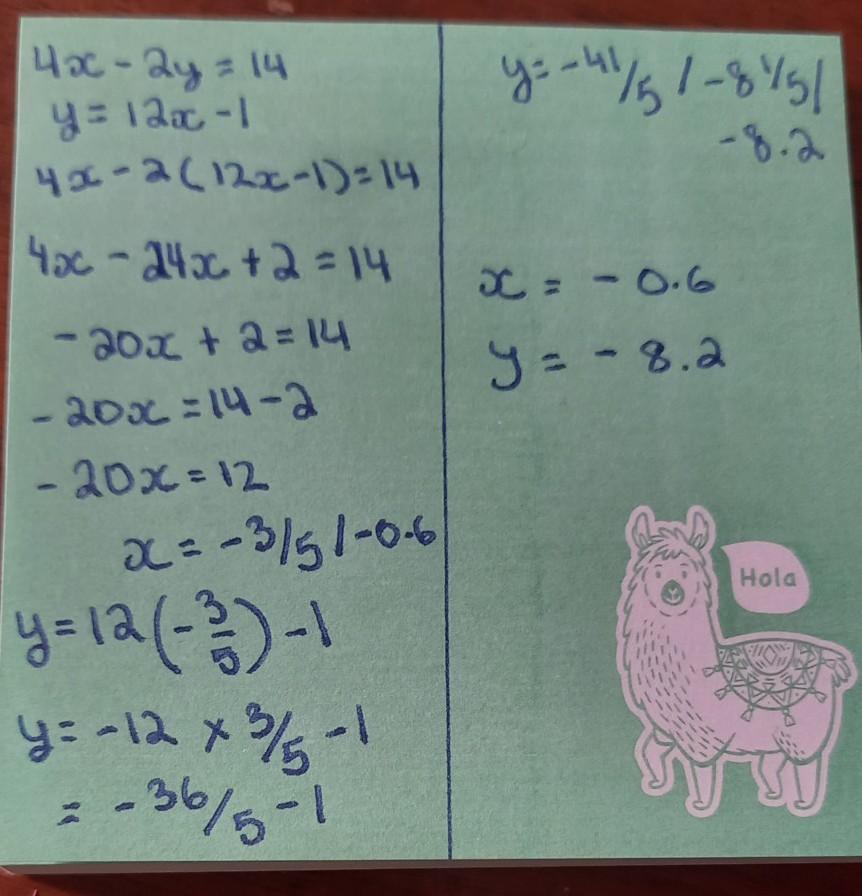 4x - 2y = 14
y = 12x - 1
4x - 2(12x-1) = 14
4x - 24x + 2 = 14
-20x + 2 = 14
-20x = 14 - 2
-20x = 12
x = -3/5 / -0.6
y = 12(-3/5) - 1
y = -12 x 3/5 - 1
= -36/5 - 1
y = -41/5 / -8 1/5 /
-8.2
x = -0.6
y = -8.2
Hola